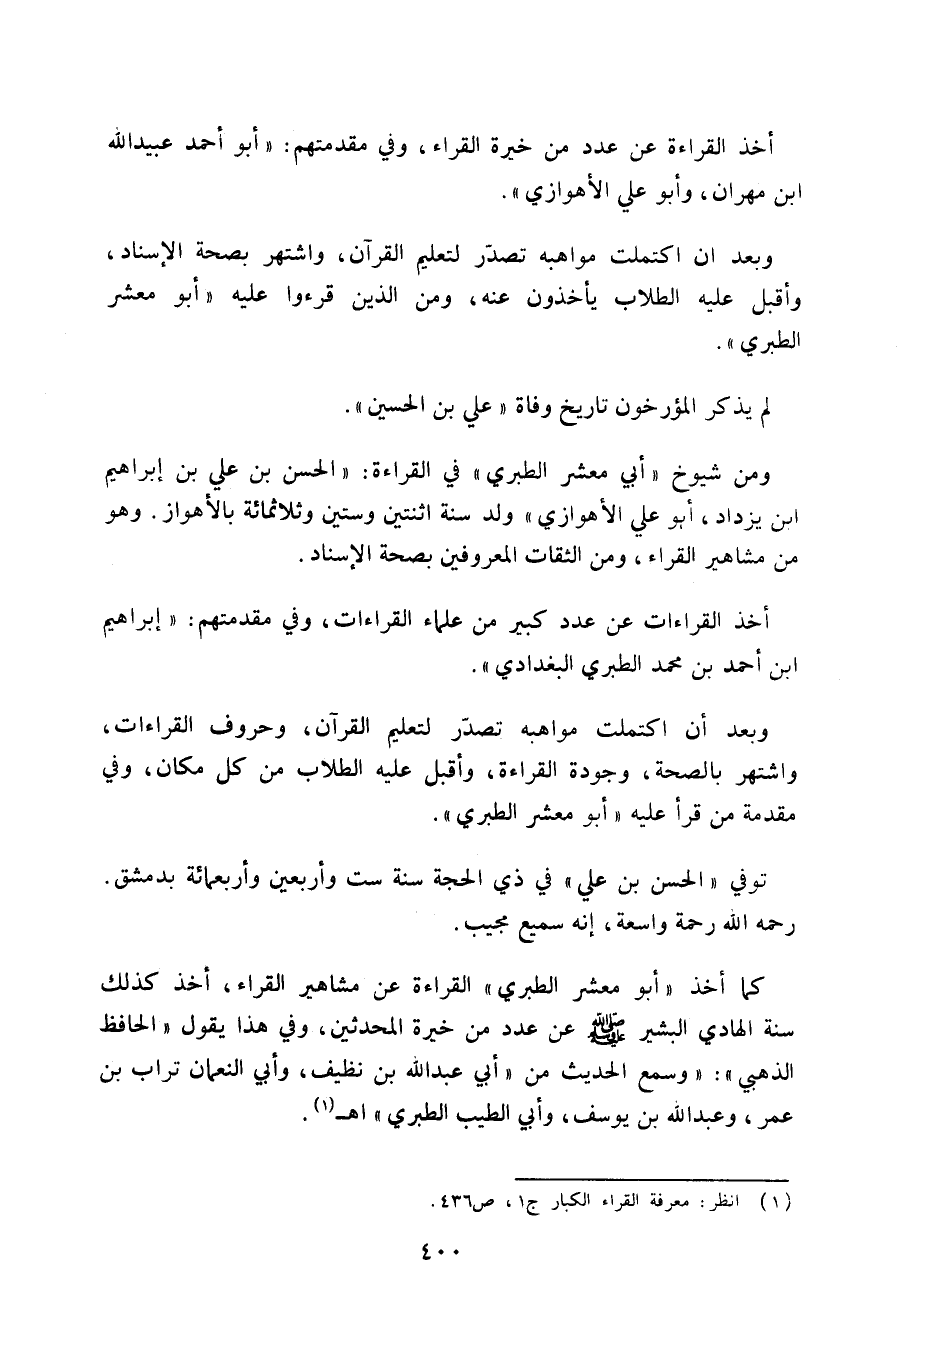 أخذ القراءة عن عدد من خيرة القراء، وفي مقدمتهم: «أبو أحمد عبيدالله
ابن مهران، وأبو علي الأهوازي».
وبعد ان اكتملت مواهبه تصدّر لتعليم القرآن، واشتهر بصحة الإسناد،
وأقبل عليه الطلاب يأخذون عنه، ومن الذين قرءوا عليه «أبو معشر
الطبري».
لم يذكر المؤرخون تاريخ وفاة «علي بن الحسين».
ومن شيوخ «أبي معشر الطبري» في القراءة: «الحسن بن علي بن إبراهيم
ابن يزداد، أبو علي الأهوازي» ولد سنة اثنتين وستين وثلاثمائة بالأهواز. وهو
من مشاهير القراء، ومن الثقات المعروفين بصحة الإسناد.
أخذ القراءات عن عدد كبير من علماء القراءات، وفي مقدمتهم: «إبراهيم
ابن أحمد بن محمد الطبري البغدادي».
وبعد أن اكتملت مواهبه تصدّر لتعليم القرآن، وحروف القراءات،
واشتهر بالصحة، وجودة القراءة، وأقبل عليه الطلاب من كل مكان، وفي
مقدمة من قرأ عليه «أبو معشر الطبري».
توفي «الحسن بن علي» في ذي الحجة سنة ست وأربعين وأربعمائة بدمشق.
رحمه الله رحمة واسعة، إنه سميع مجيب.
كما أخذ «أبو معشر الطبري» القراءة عن مشاهير القراء، أخذ كذلك
سنة الهادي البشير ﷺ عن عدد من خيرة المحدثين، وفي هذا يقول «الحافظ
الذهبي»: «وسمع الحديث من «أبي عبدالله بن نظيف، وأبي النعمان تراب بن
عمر، وعبدالله بن يوسف، وأبي الطيب الطبري» اهـ(١).
(١) انظر: معرفة القراء الكبار ج١، ص٤٣٦.
٤٠٠